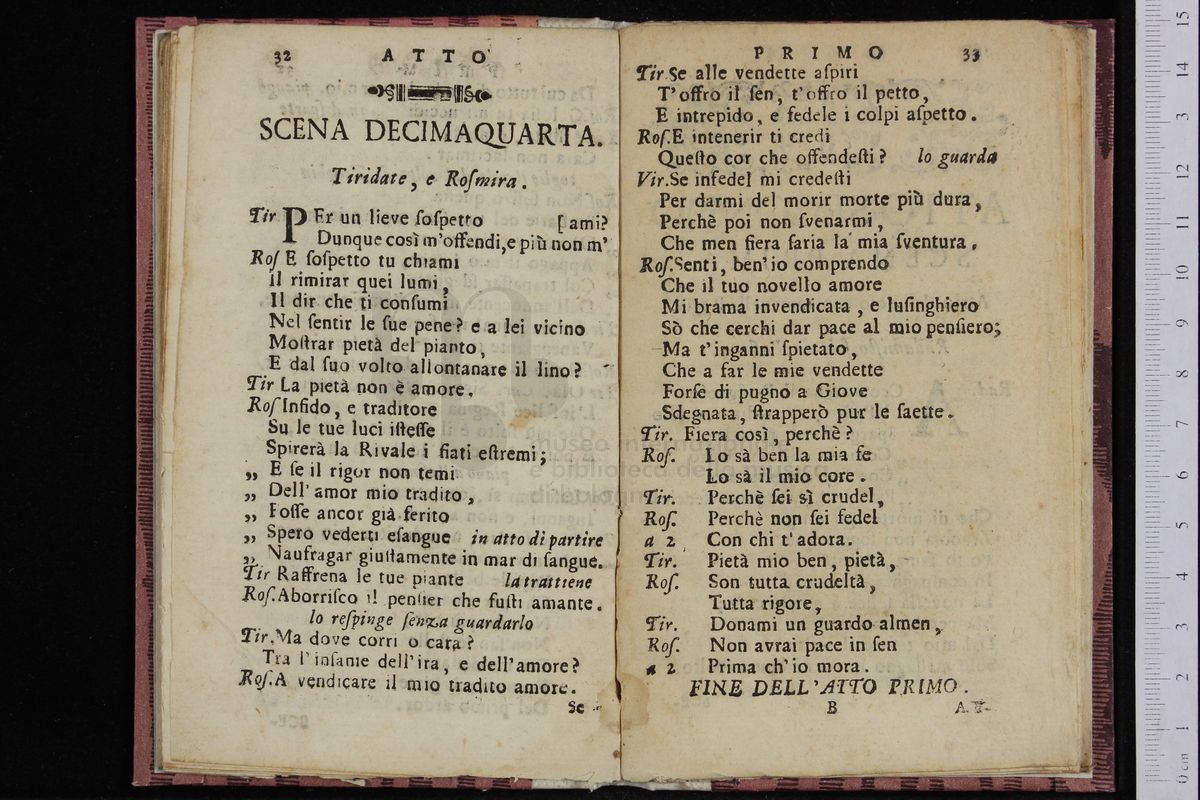 32 ATTO
SCENA DECIMAQUARTA.
Tiridate, e Roſmira.
Tir PEr un lieve ſoſpetto [ami?
Dunque così m'offendi,e più non m'
Roſ E ſoſpetto tu chiami
Il rimirar quei lumi,
Il dir che ti conſumi
Nel ſentir le ſue pene? e a lei vicino
Moſtrar pietà del pianto,
E dal ſuo volto allontanare il lino?
Tir La pietà non è amore.
Roſ Infido, e traditore
Su le tue luci iſteſſe
Spirerà la Rivale i fiati eſtremi;
„ E ſe il rigor non temi
„ Dell' amor mio tradito,
„ Foſſe ancor già ferito
„ Spero vederti eſangue in atto di partire
„ Naufragar giuſtamente in mar di ſangue.
Tir Raffrena le tue piante la trattiene
Roſ. Aborriſco il penſier che fuſti amante.
lo reſpinge ſenza guardarlo
Tir. Ma dove corri o cara?
Tra l'inſanie dell'ira, e dell'amore?
Roſ. A vendicare il mio tradito amore.
Se
PRIMO 33
Tir. Se alle vendette aſpiri
T'offro il ſen, t'offro il petto,
E intrepido, e fedele i colpi aſpetto.
Roſ. E intenerir ti credi
Queſto cor che offendeſti? lo guarda
Vir. Se infedel mi credeſti
Per darmi del morir morte più dura,
Perchè poi non ſvenarmi,
Che men fiera ſaria la mia ſventura.
Roſ. Senti, ben' io comprendo
Che il tuo novello amore
Mi brama invendicata, e luſinghiero
Sò che cerchi dar pace al mio penſiero;
Ma t'inganni ſpietato,
Che a far le mie vendette
Forſe di pugno a Giove
Sdegnata, ſtrapperò pur le ſaette.
Tir. Fiera così, perchè?
Roſ. Lo sà ben la mia fe
Lo sà il mio core.
Tir. Perchè ſei sì crudel,
Roſ. Perchè non ſei fedel
a 2 Con chi t'adora.
Tir. Pietà mio ben, pietà,
Roſ. Son tutta crudeltà,
Tutta rigore,
Tir. Donami un guardo almen,
Roſ. Non avrai pace in ſen
a 2 Prima ch'io mora.
FINE DELL'ATTO PRIMO.
B
museo internazionale
e biblioteca della musica
di bologna
0 cm 1 2 3 4 5 6 7 8 9 10 11 12 13 14 15